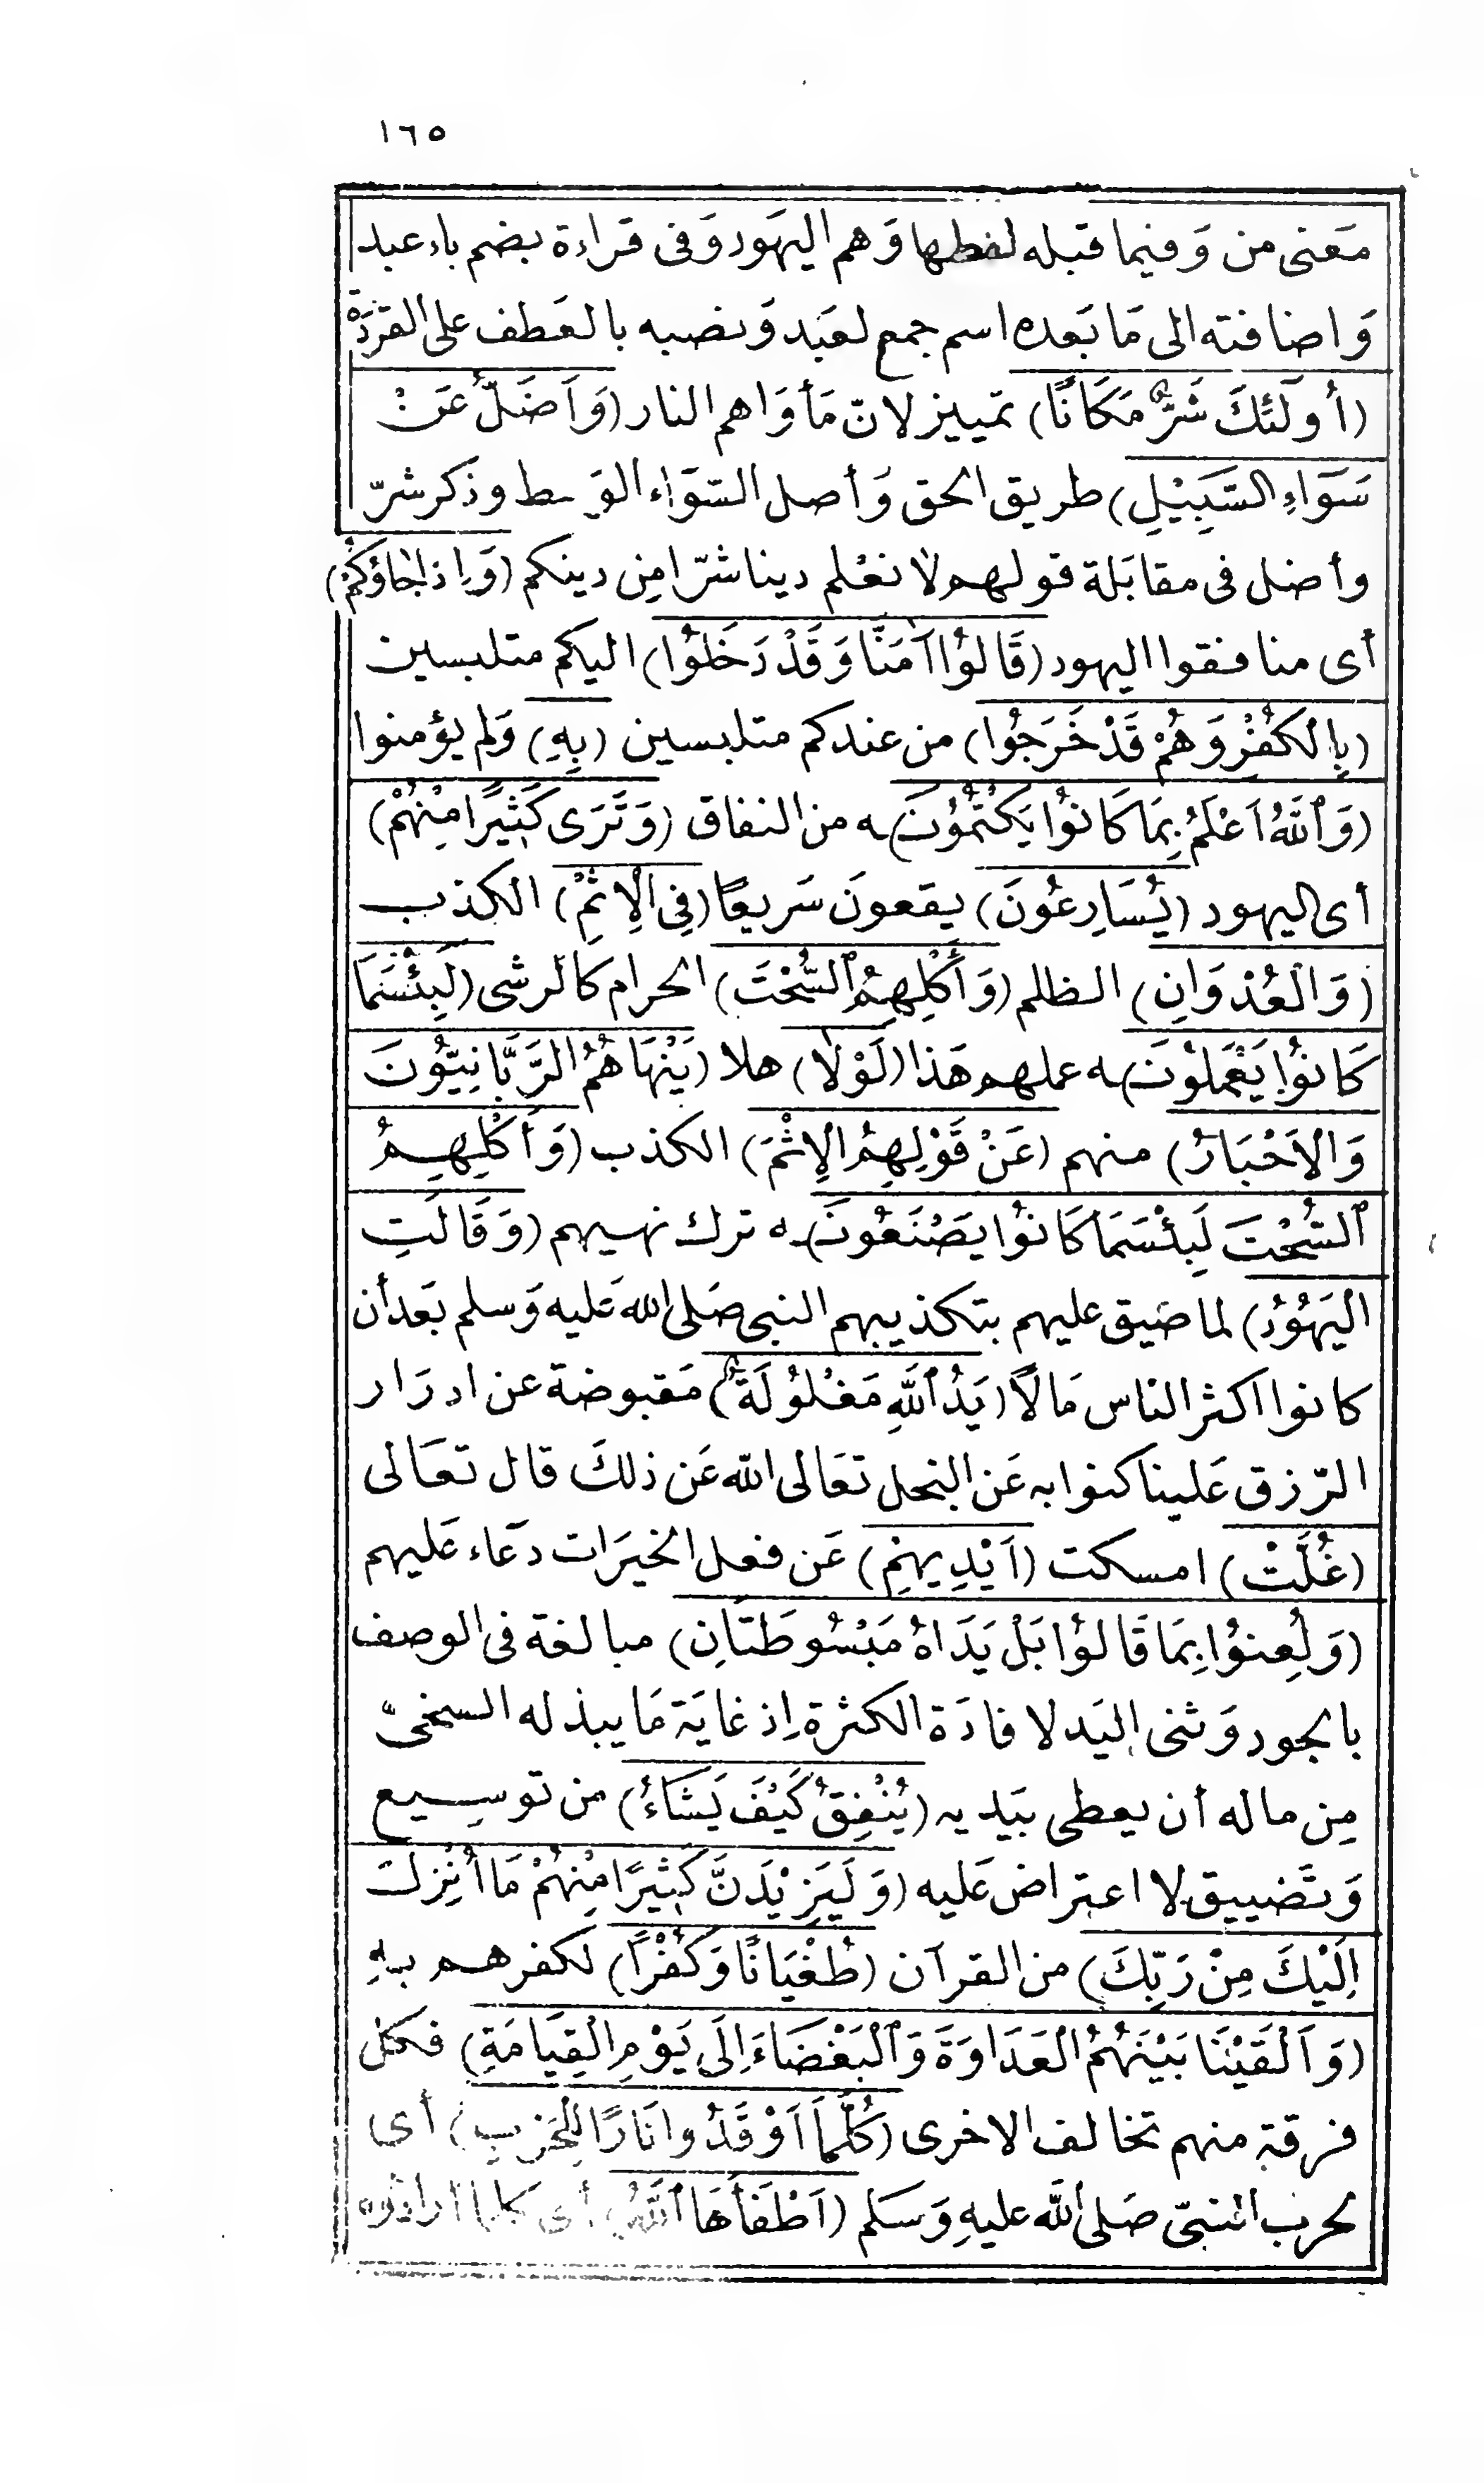 ١٦٥
مَعنى من وَفيما قبله لفظها وَهم اليهَود وَفى قراءة بضم باء عبد
وَاضافته الى مَا بَعده اسم جمع لعَبد وَنصبه بالعَطف على القرَدَة
(أُولَئِكَ شَرٌّ مَكَانًا) تمييز لانّ مَأوَاهم النار (وَاَضَلُّ عَنْ
سَوَآءِ السَّبِيْلِ) طريق الحق وَأصل السّوَاء الوَسط وذكر شرّ
وأضل فى مقابَلة قولهم لا نعْلم دينا شرّا مِن دينكم (وَاِذَا جَاؤُكُمْ)
أى منافقوا اليهود (قَالُوْا آمَنَّا وَقَدْ دَخَلُوْا) اليكم متلبسين
(بِالْكُفْرِ وَهُمْ قَدْ خَرَجُوْا) من عندكم متلبسين (بِهِ) وَلم يؤمنوا
(وَٱللّٰهُ اَعْلَمُ بِمَا كَانُوْا يَكْتُمُوْنَ)ـه من النفاق (وَتَرَى كَثِيْرًا مِنْهُمْ)
أى اليهود (يُسَارِعُوْنَ) يقعونَ سَريعًا (فِى الْاِثْمِ) الكذب
(وَالْعُدْوَانِ) الظلم (وَأَكْلِهِمُ ٱلسُّحْتَ) الحرام كالرشى (لَبِئْسَمَا
كَانُوْا يَعْمَلُوْنَ)ـه عملهم هَذا (لَوْلَا) هلا (يَنْهَاهُمُ الرَّبَّانِيُّوْنَ
وَالْاَحْبَارُ) منهم (عَنْ قَوْلِهِمُ الْاِثْمَ) الكذب (وَأَكْلِهِمُ
ٱلسُّحْتَ لَبِئْسَمَا كَانُوْا يَصْنَعُوْنَ)ـه ترك نهيهم (وَقَالَتِ
الْيَهُوْدُ) لما ضيق عليهم بتكذيبهم النبى صَلى الله عَليه وَسلم بَعد أن
كانوا اكثر الناس مَالاً (يَدُ ٱللّٰهِ مَغْلُوْلَةٌ) مَقبوضة عن ادرَار
الرّزق عَلينا كنوا به عَن البخل تعَالى الله عَن ذلكَ قال تعَالى
(غُلَّتْ) امسكت (اَيْدِيهِمْ) عَن فعل الخيرَات دعَاء عَليهم
(وَلُعِنُوْا بِمَا قَالُوْا بَلْ يَدَاهُ مَبْسُوطَتَانِ) مبالغة فى الوصف
بالجود وَثنى اليَد لافادَة الكثرة اِذ غايَة مَا يبذله السخىّ
مِن ماله أن يعطى بيَديه (يُنْفِقُ كَيْفَ يَشَاءُ) من توسيع
وَتَضييق لا اعتراض عَليه (وَلَيَزِيْدَنَّ كَثِيْرًا مِنْهُمْ مَا أُنْزِلَ
اِلَيْكَ مِنْ رَبِّكَ) من القرآن (طُغْيَانًا وَكُفْرًا) لكفرهم بهِ
(وَاَلْقَيْنَا بَيْنَهُمُ الْعَدَاوَةَ وَٱلْبَغْضَاءَ اِلَى يَوْمِ الْقِيَامَةِ) فكل
فرقة منهم تخالف الاخرى (كُلَّمَا اَوْقَدُوا نَارًا لِلْحَرْبِ) أى
لحرب النبىّ صَلى الله عليهِ وَسَلم (اَطْفَأَهَا ٱللّٰهُ) أى كلما أرادوه